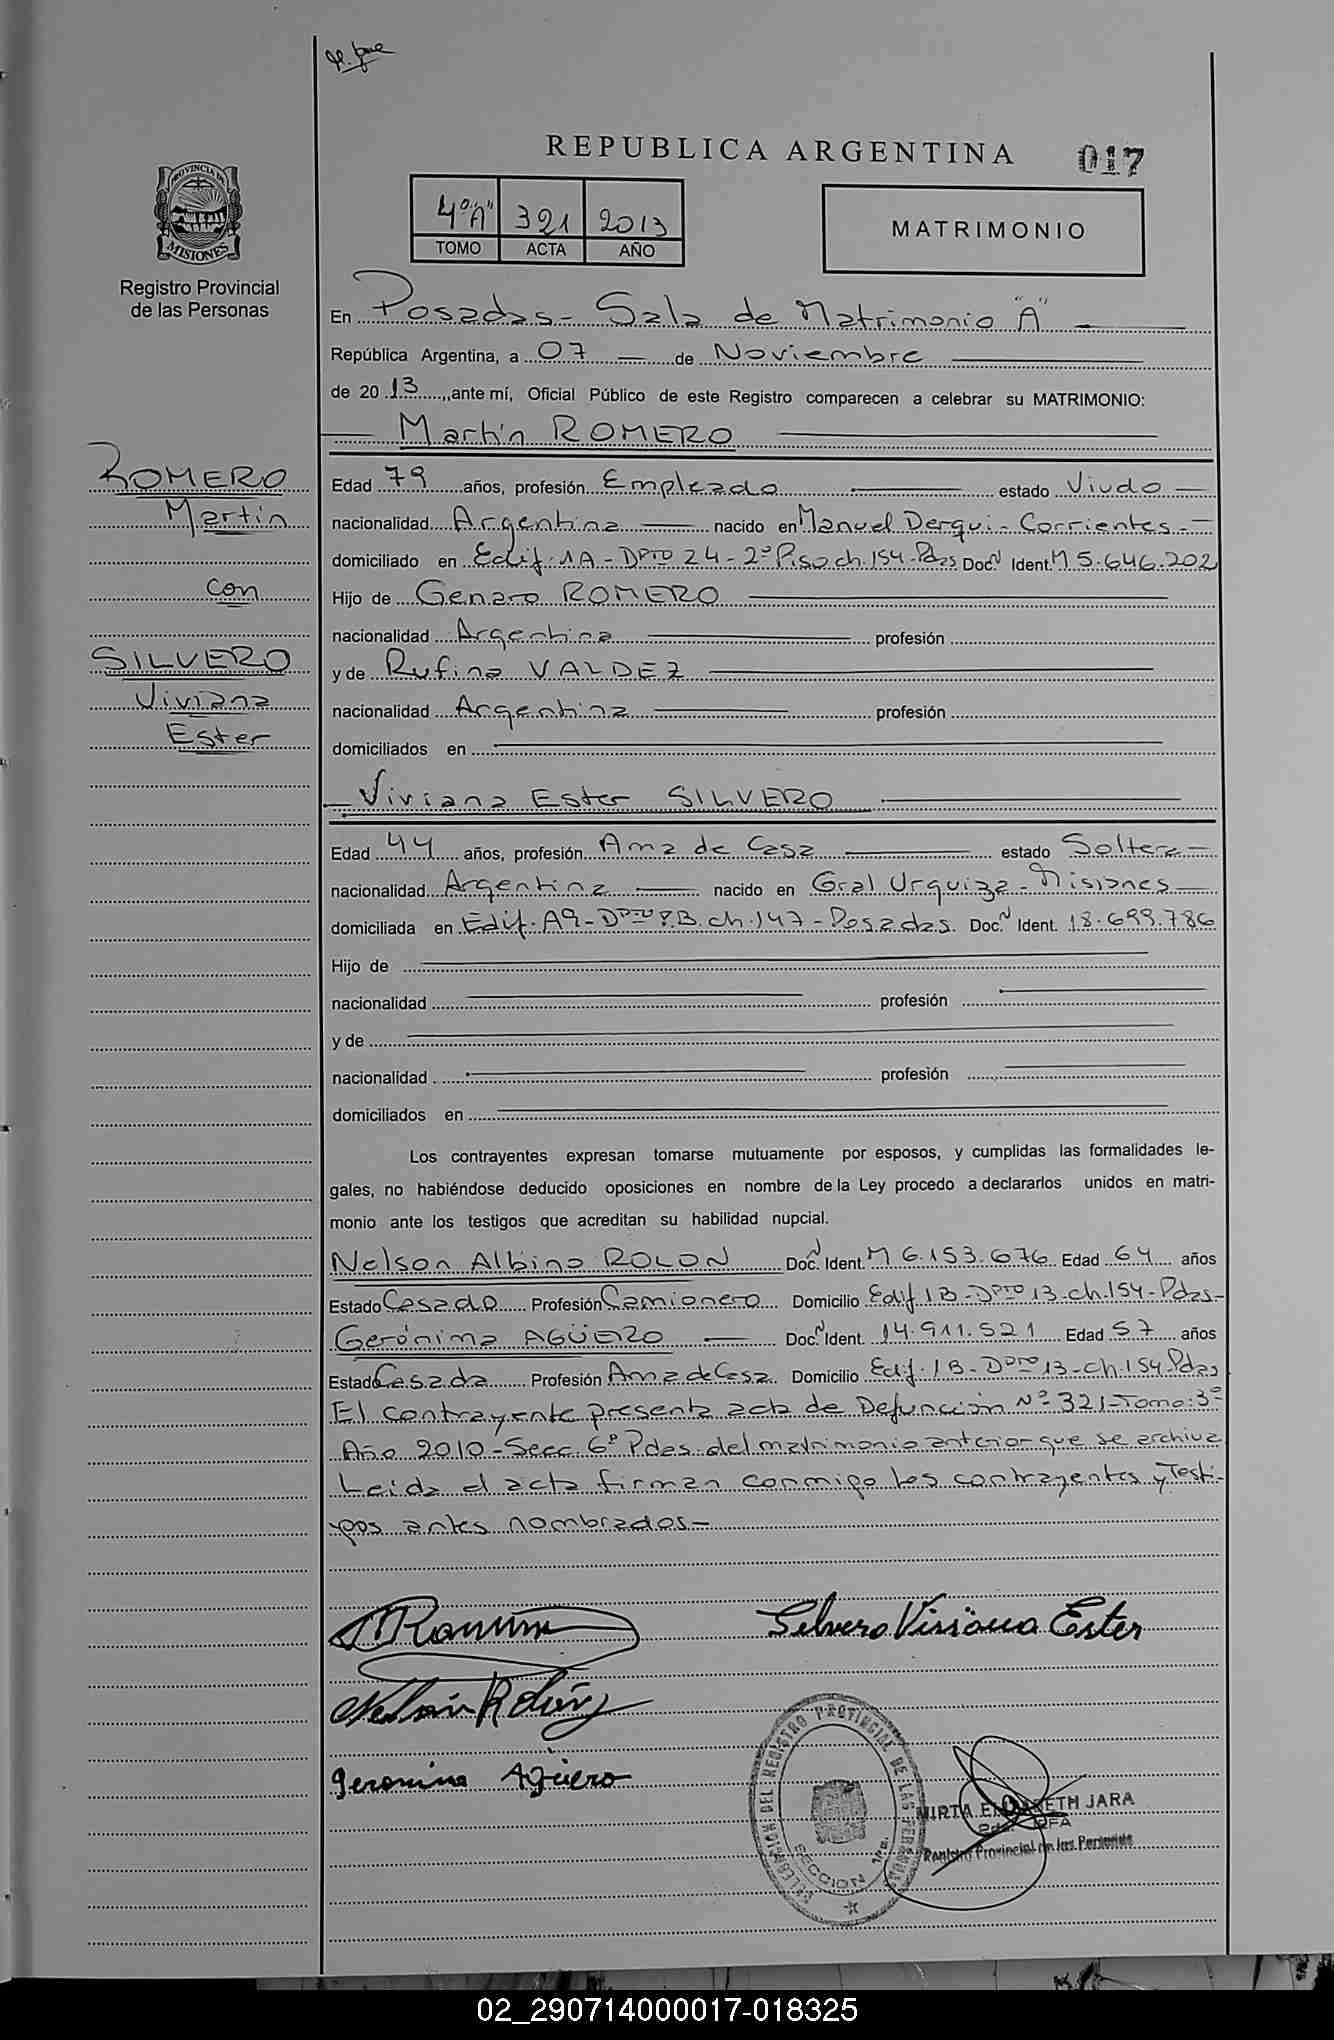 REPUBLICA ARGENTINA 017
4º "A" 321 2013
TOMO ACTA AÑO
MATRIMONIO
PROVINCIA DE MISIONES
Registro Provincial
de las Personas
En Posadas - Sala de Matrimonio "A" -
República Argentina, a 07 - de Noviembre
de 2013, ante mí, Oficial Público de este Registro comparecen a celebrar su MATRIMONIO:
Martín ROMERO
ROMERO
Martín
con
SILVERO
Viviana
Ester
Edad 79 años, profesión Empleado estado Viudo -
nacionalidad Argentina nacido en Manuel Derqui - Corrientes. -
domiciliado en Edif. 1A - Dpto 24 - 2º Piso ch. 154 - Pdas Doc. N Ident. M 5.646.202
Hijo de Genaro ROMERO
nacionalidad Argentina profesión
y de Rufina VALDEZ
nacionalidad Argentina profesión
domiciliados en
Viviana Ester SILVERO
Edad 44 años, profesión Ama de Casa estado Soltera -
nacionalidad Argentina nacido en Gral Urquiza - Misiones
domiciliada en Edif. A9 - Dpto P.B. ch. 147 - Posadas. Doc. N Ident. 18.699.786
Hijo de
nacionalidad profesión
y de
nacionalidad profesión
domiciliados en
Los contrayentes expresan tomarse mutuamente por esposos, y cumplidas las formalidades le-
gales, no habiéndose deducido oposiciones en nombre de la Ley procedo a declararlos unidos en matri-
monio ante los testigos que acreditan su habilidad nupcial.
Nelson Albino ROLON Doc. N Ident. M 6.153.676 Edad 64 años
Estado Casado Profesión Camionero Domicilio Edif 1B - Dpto 13 - ch. 154 - Pdas -
Gerónima AGÜERO Doc. N Ident. 14.911.521 Edad 57 años
Estado Casada Profesión Ama de Casa. Domicilio Edif. 1B - Dpto 13 - ch 154 Pdas
El contrayente presenta acta de Defunción Nº 321 - Tomo: 3º
Año 2010 - Secc. 6º Pdas. del matrimonio anterior que se archiva
Leida el acta firman conmigo los contrayentes y Testi-
gos antes nombrados -
Silvero Viviana Ester
Geronima Agüero
MIRTA ELIZABETH JARA
Registro Provincial de las Personas
02_290714000017-018325